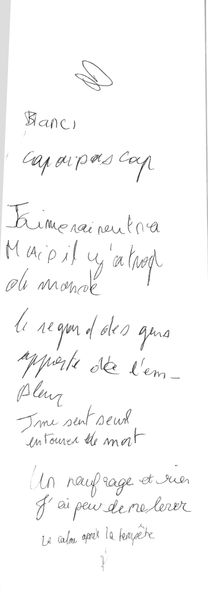 Blanc,
cap ou pas cap
J'aimerai rentrer
Mais il y'a trop
de monde
le regard des gens
apporte de l'em-
pleur
J'me sent seul
entourer de mort
Un naufrage et rien
J'ai peur de me lever
Le calme après la tempête